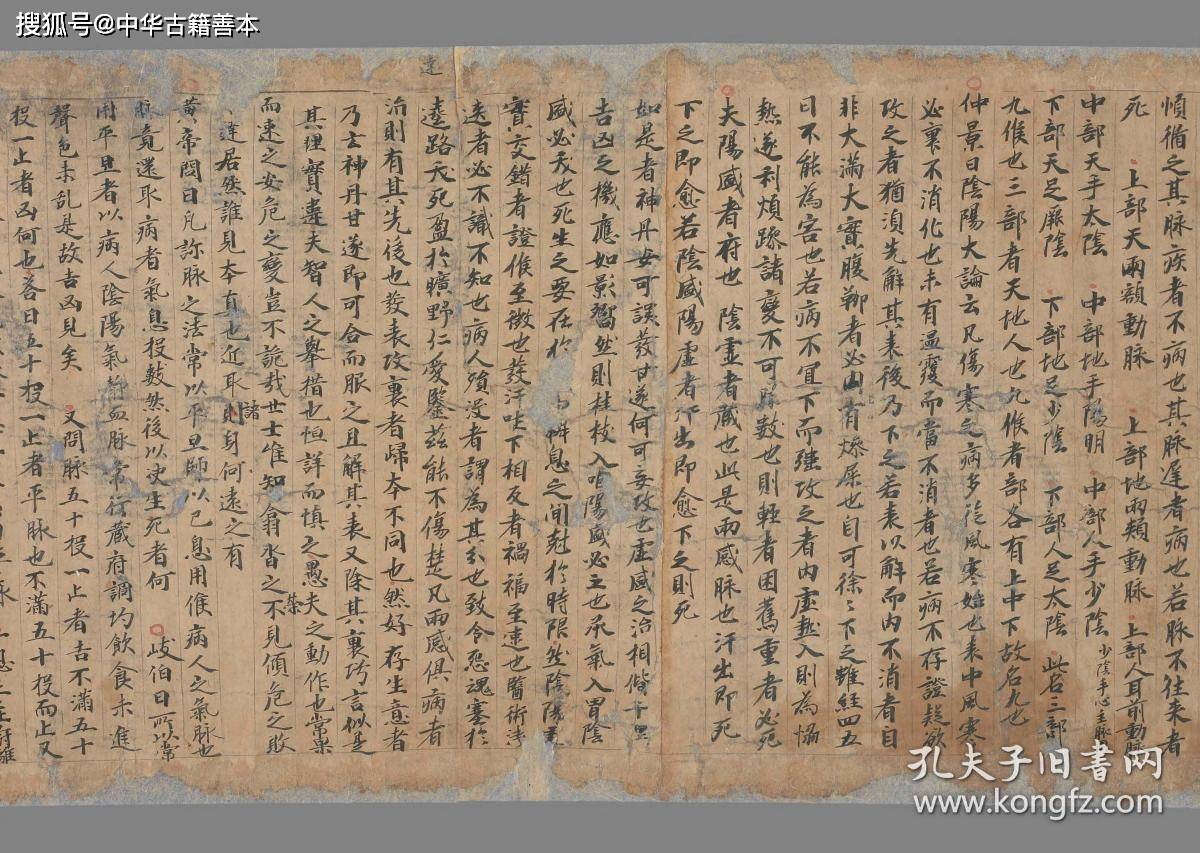 搜狐号@中华古籍善本
順循之其脉疾者不病也其脉遲者病也若脉不往来者
死 上部天兩額動脉 上部地兩頰動脉 上部人耳前動脉
中部天手太陰 中部地手陽明 中部人手少陰 少陰手心主脉
下部天足厥陰 下部地足少陰 下部人足太陰 此名三部
九候也三部者天地人也九候者部各有上中下故名九也
仲景曰陰陽大論云凡傷寒之病多從風寒始也表中風寒
必裏不消化也未有温覆而當不消者也若病不存證疑欲
攻之者猶湏先解其表後乃下之若表以解而内不消者自
非大滿大實腹鞕者必内有燥屎也自可徐〻下之雖經四五
日不能為害也若病不宜下而强攻之者内虚熱入則為愶
熱遂利煩躁諸變不可勝數也則輕者困篤重者必死
夫陽盛者府也 陰虚者蔵也此是兩感脉也汗出即死
下之即愈若陰盛陽虚者汗出即愈下之則死
如是者神丹安可誤發甘遂何可妄攻也虚盛之治相偝千里
吉凶之機應如影嚮然則桂枝入咽陽盛必亡也承氣入胃陰
盛必夭也死生之要在於 瞬息之間尅於時限然陰陽虚
實交錯者證候至微也發汗吐下相反者禍福至速也醫術淺
迭者必不識不知也病人殞没者謂為其分也致令惡魂塞於
逵路夭死盈於曠野仁愛鑒茲能不傷楚凡兩感俱病者
治則有其先後也發表攻裏者歸本不同也然好存生意者
乃云神丹甘遂即可合而服之且解其表又除其裏巧言似是
其理實違夫智人之舉措也恒詳而慎之愚夫之動作也常果
而速之安危之變豈不詭哉世士唯知翕沓之榮不見傾危之敗
達居然誰見本真也近取諸身何遠之有
黄帝問曰凡診脉之法常以平旦師以己息用候病人之氣脉也
脉竟還取病者氣息投數然後以决生死者何 岐伯曰所以常
用平旦者以病人陰陽氣静血脉常行蔵府調均飲食未進
聲色未乱是故吉凶見矣 又問脉五十投一止者吉不滿五十
投一止者凶何也荅曰五十投一止者平脉也不滿五十投而止又
孔夫子旧书网
www.kongfz.com